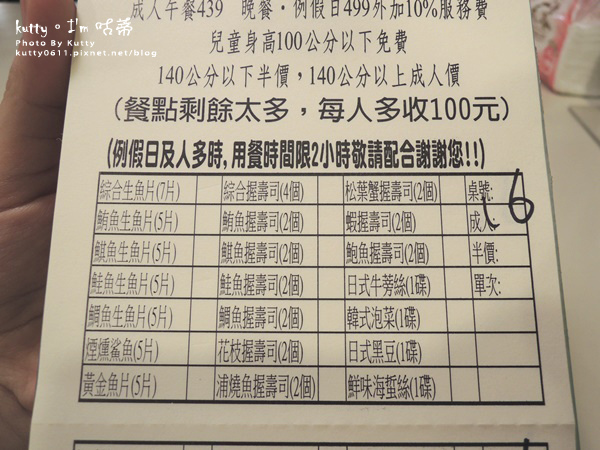 kutty。I'm 咕蒂
Photo By Kutty
kutty0611.pixnet.net/blog
成人午餐439 晚餐・例假日499外加10%服務費
兒童身高100公分以下免費
140公分以下半價，140公分以上成人價
（餐點剩餘太多，每人多收100元）
(例假日及人多時,用餐時間限2小時敬請配合謝謝您!!)
綜合生魚片(7片) 綜合握壽司(4個) 松葉蟹握壽司(2個) 桌號: 6
鮪魚生魚片(5片) 鮪魚握壽司(2個) 蝦握壽司(2個) 成人:
鯕魚生魚片(5片) 鯕魚握壽司(2個) 鮑魚握壽司(2個) 半價:
鮭魚生魚片(5片) 鮭魚握壽司(2個) 日式牛蒡絲(1碟) 單次:
鯛魚生魚片(5片) 鯛魚握壽司(2個) 韓式泡菜(1碟)
煙燻鯊魚(5片) 花枝握壽司(2個) 日式黑豆(1碟)
黃金魚片(5片) 浦燒魚握壽司(2個) 鮮味海蜇絲(1碟)